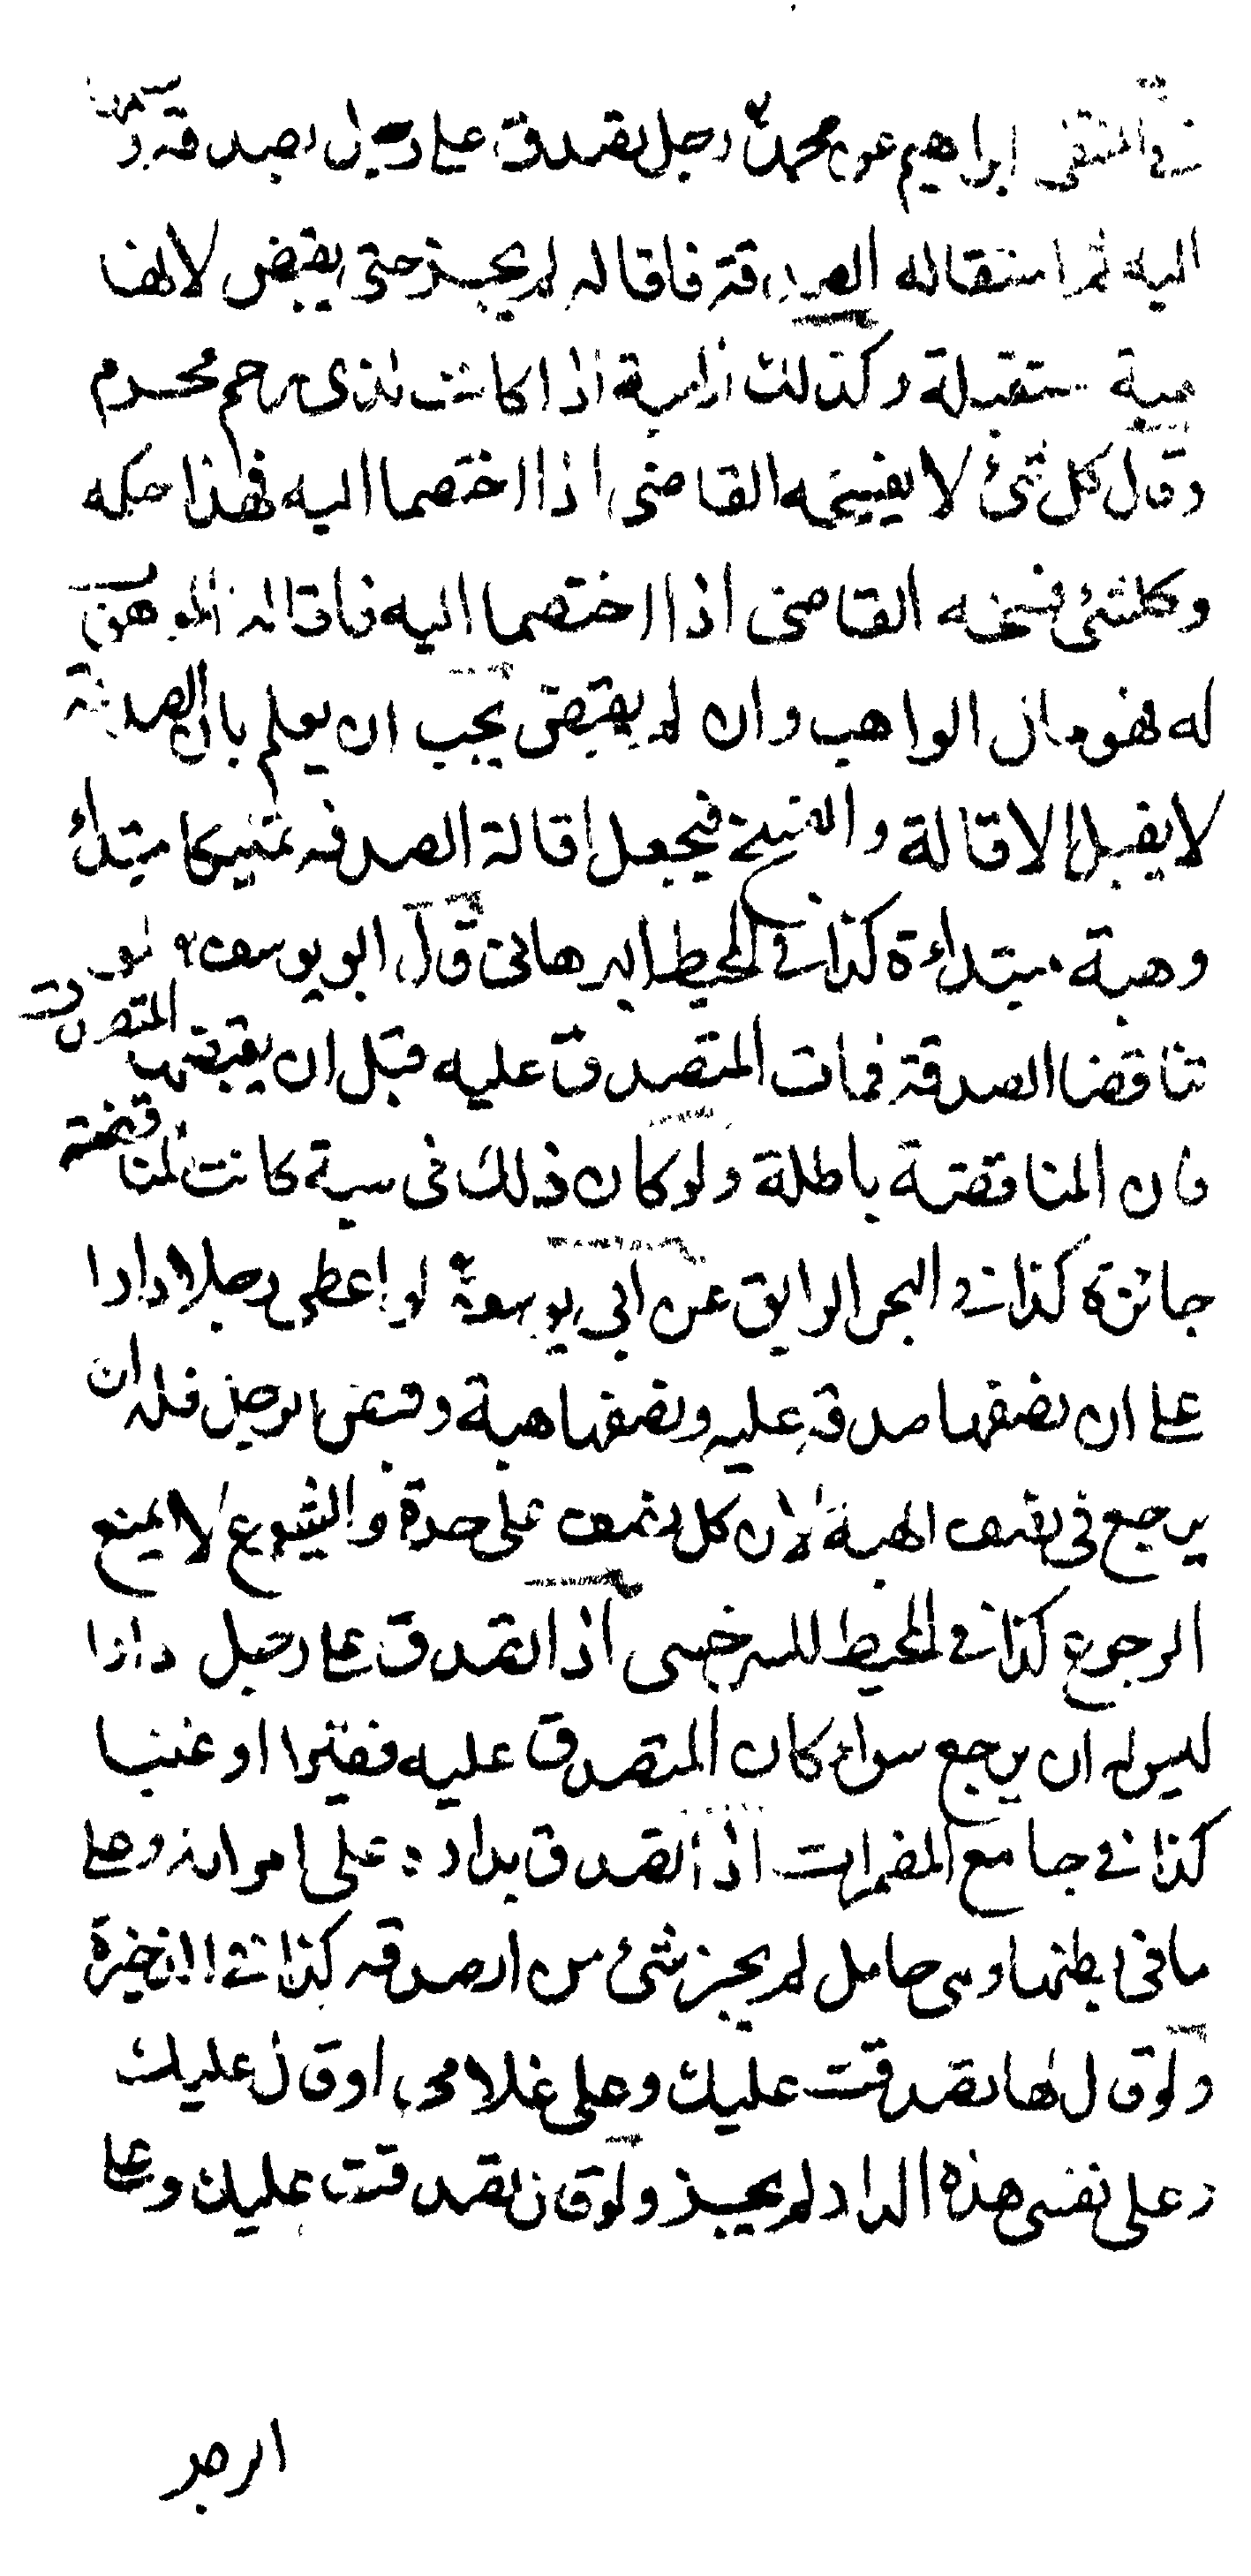 في المنتقى ابراهيم عن محمد رجل تصدق على رجل بصدقة وسلمها
اليه ثم استقاله الصدقة فاقاله لم يجز حتى يقبض لانها
هبة مستقبلة وكذلك الهبة اذا كانت لذى رحم محرم
وقال كل شئ لا يفسخه القاضى اذا اختصما اليه فهذا حكمه
وكلشئ فسخه القاضى اذا اختصما اليه فاقاله الموهوب
له فهو مال الواهب وان لم يقبض يجب ان يعلم بان الصدقة
لا يقبل الاقالة والفسخ فيجعل اقالة الصدقه تمليكا مبتداء
وهبة مبتداءة كذا في المحيط البرهانى قال ابو يوسف لو
تناقضا الصدقة فمات المتصدق عليه قبل ان يقبضها المتصدق
فان المناقضة باطلة ولو كان ذلك فى هبة كانت المناقضة
جائزة كذا في البحر الرايق عن ابى يوسف لو اعطى رجلا دارا
على ان نصفها صدقة عليه ونصفها هبة وقبض الرجل فله ان
يرجع فى نصف الهبة لان كل نصف على حدة والشيوع لا يمنع
الرجوع كذا في المحيط للسرخسى اذا تصدق على رجل دارا
ليس له ان يرجع سواء كان المتصدق عليه فقيرا او غنيا
كذا في جامع المضمرات اذا تصدق بداره على امراته وعلى
ما فى بطنها وهى حامل لم يجز شئ من الصدقه كذا في الذخيرة
ولو قال لها تصدقت عليك وعلى غلامى او قال عليك
وعلى نفسى هذه الدار لم يجز ولو قال تصدقت عليك وعلى
الرجل